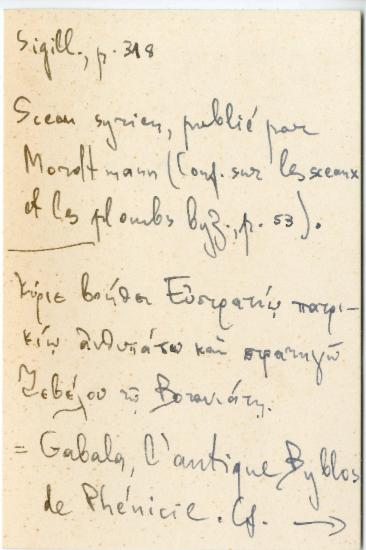 Sigill., p. 318
Sceau syrien, publié par
Mordtmann (Conf. sur les sceaux
et les plombs byz., p. 53).
Κύριε βοήθει Εὐστρατίῳ πατρι-
κίῳ ἀνθυπάτῳ καὶ στρατηγῷ
Ζεβέλου τῷ Βοτανιάτῃ.
= Gabala, l'antique Byblos
de Phénicie. Cf. →